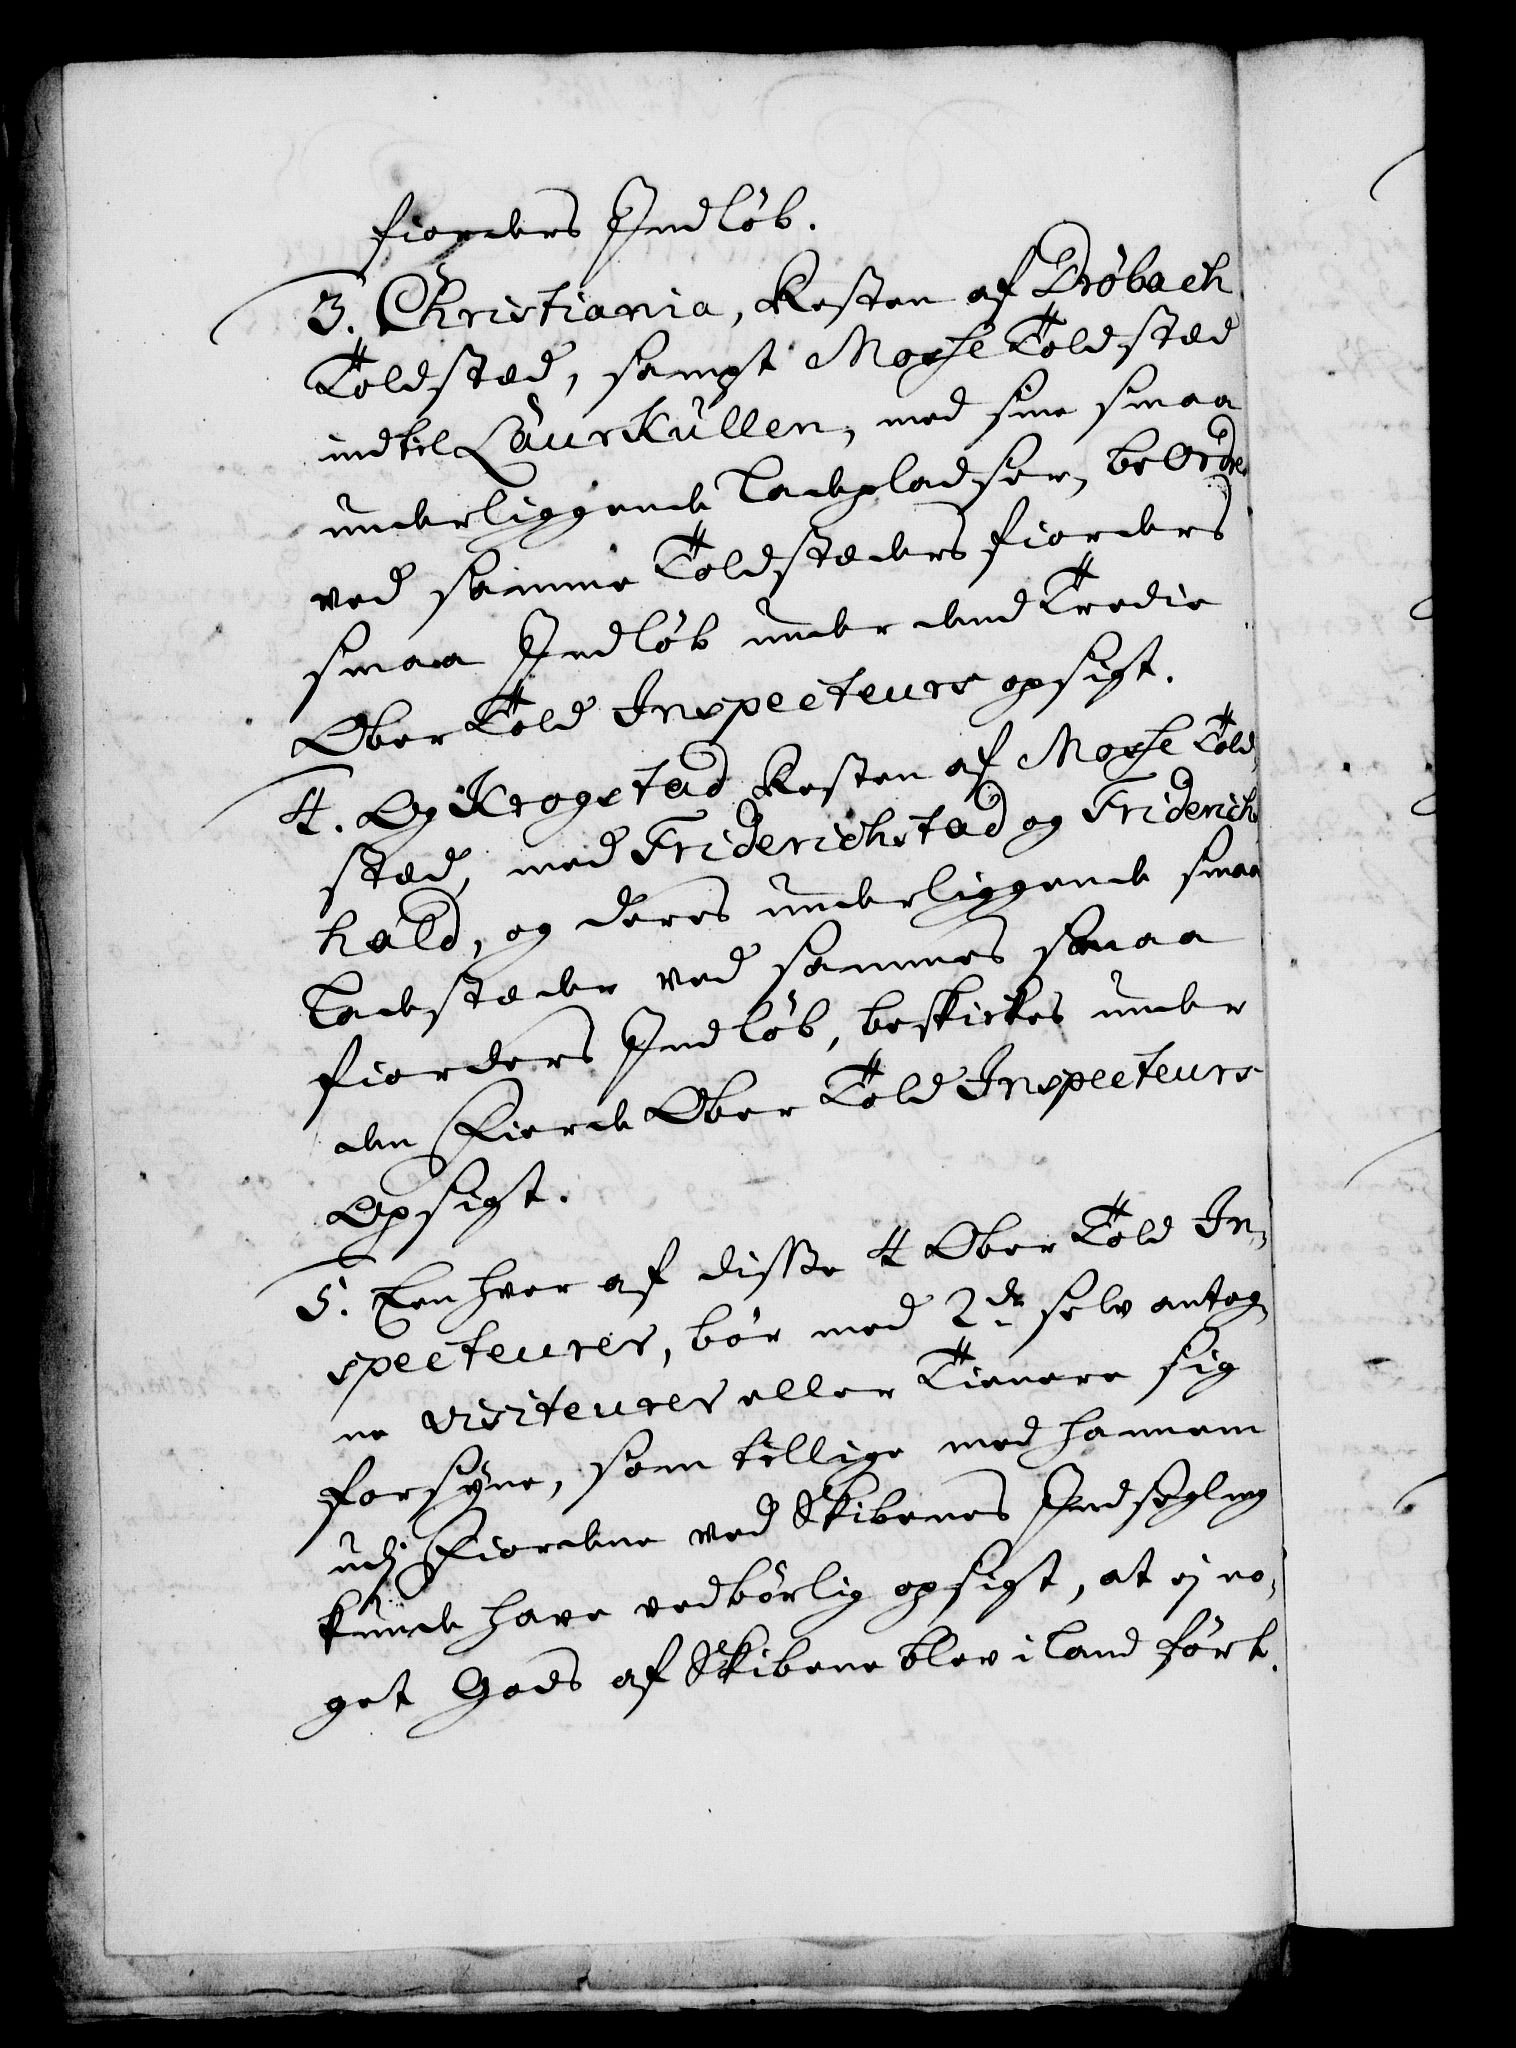 fiorders Indløb.
3. Christiania, Resten af Drøbach
Toldsted, sampt Mosse Toldsted
indtil Laurkullen, med sine smaa
underliggende Ladepladser, beordre
ved samme Toldsteders fiorders
smaa Indløb under dend Tredie
Ober Told Inspecteurs opsigt.
4. Og Krogstad Resten af Mosse Told,
sted, med Friderichstad og Friderich
hald, og deres underliggende smaa
Ladesteder ved sammes smaa
fiorders Indløb, beskickes under
den Fierde Ober Told Inspecteurs
Opsigt.
5. Een hver af disse 4 Ober Told In,
specteurer, bør med 2de selv antag,
ne Visiteurer eller Tienere sig
forsÿne, som tillige med hannem
udj Fiordene ved Skibenes Indsegling
kunde have vedbørlig opsigt, at ej no,
get Gods af Skibene blev i land ført.